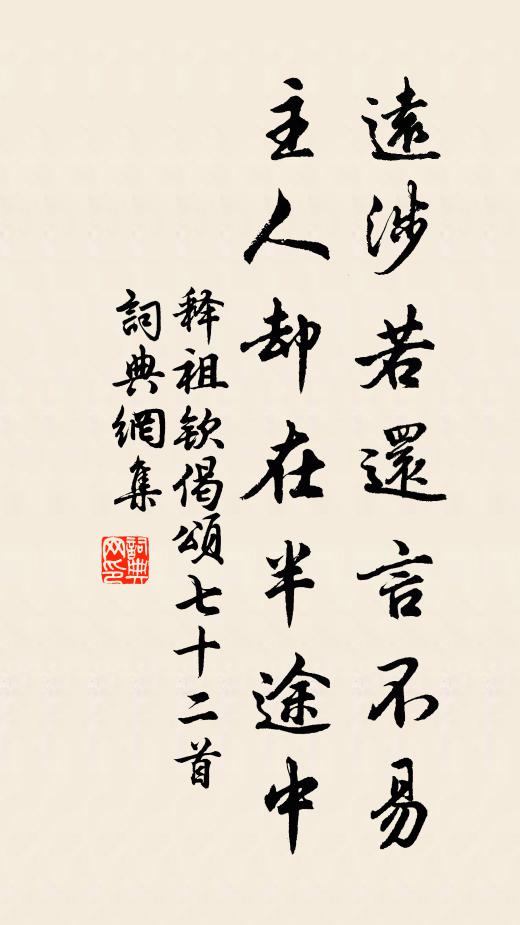 遠涉若還言不易
主人却在半途中
释祖钦偈頌七十二首
詞典網集
詞典网印